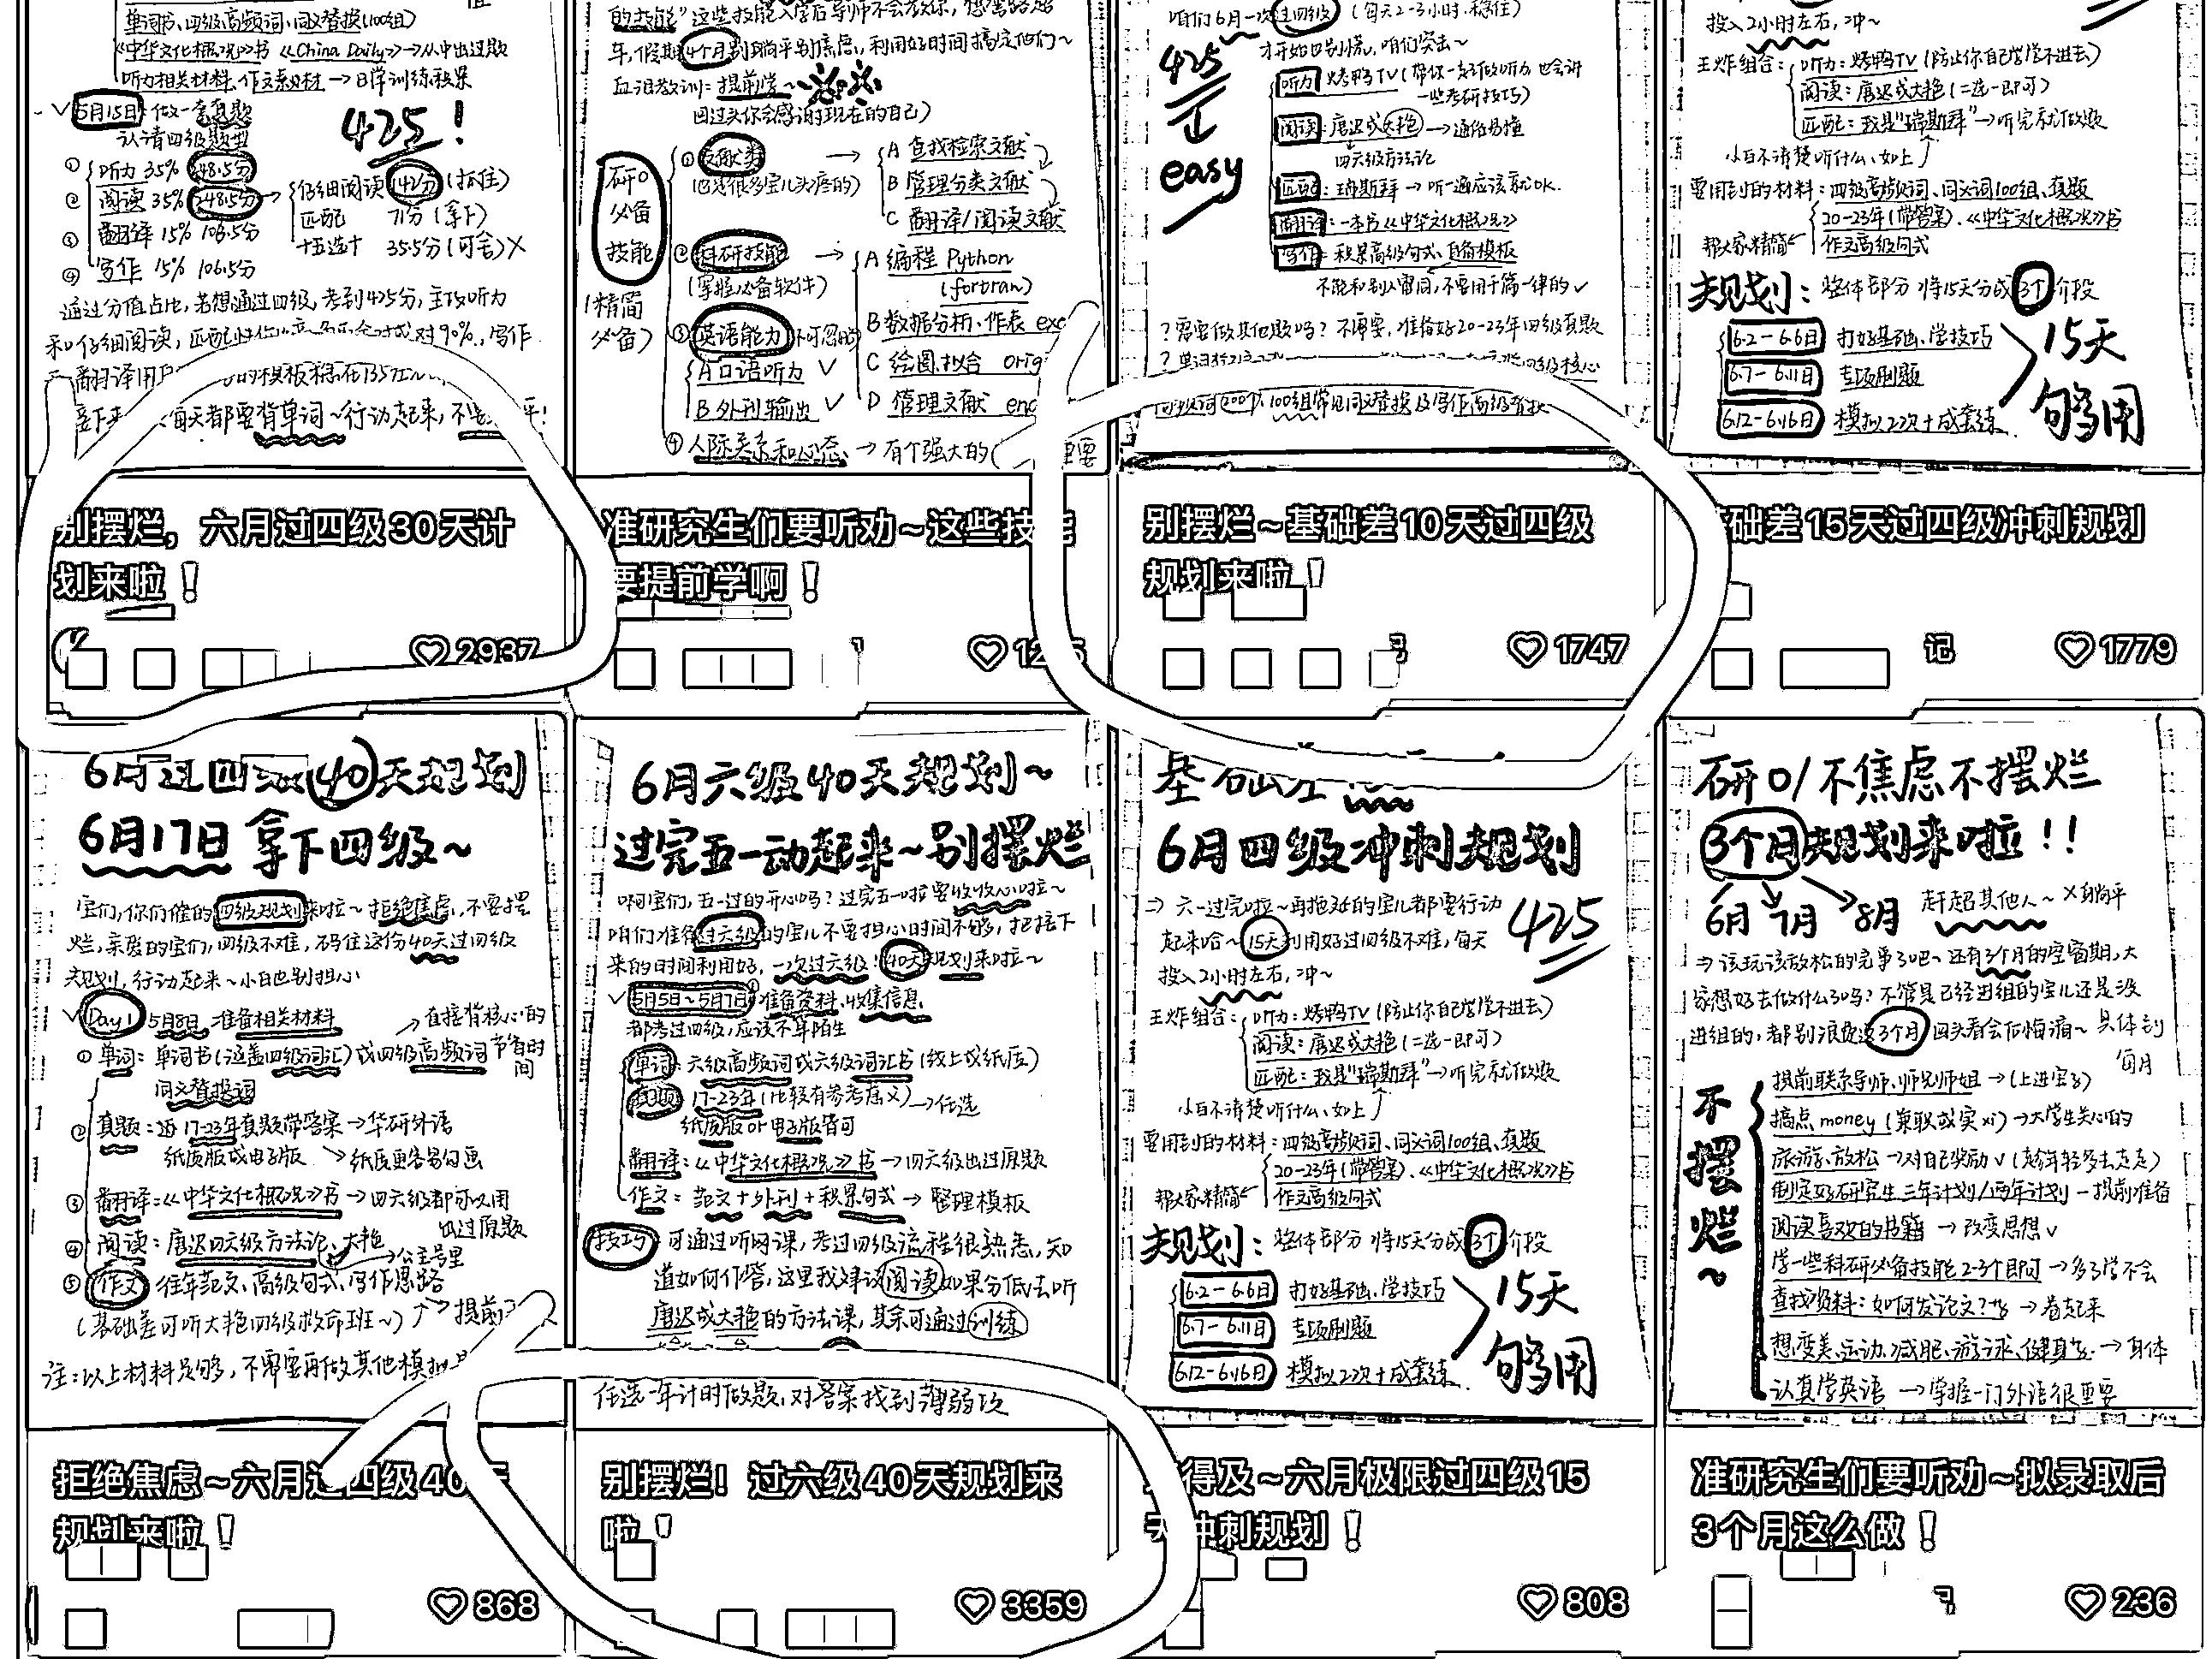 单词书、四级高频词、同义替换(100组)
《中华文化概况》书 《China Daily》→从中出过题
听力相关材料、作文素材 → 日常训练积累
√ 5月15日: 做一套真题
认清四级题型
425!
① 听力 35% 248.5分
② 阅读 35% 248.5分 →
仔细阅读 142分 (抓住)
匹配 71分 (拿下)
十五选十 35.5分 (可舍) X
③ 翻译 15% 106.5分
④ 写作 15% 106.5分
通过分值占比,若想通过四级,考到425分,主攻听力
和仔细阅读,匹配
对90%,写作
翻译用
每天都要背单词~行动起来,
别摆烂，六月过四级30天计
划来啦！
2937
的技能"这些技能入学后导师不会教你,
年,假期4个月别躺平别焦虑,利用好时间搞定他们~
血泪教训=提前学~
回过头你会感谢现在的自己)
研0
必备
技能
(精简
必备)
① 文献类 →
(也是很多宝儿头疼的)
A 查找检索文献
B 管理分类文献
C 翻译/阅读文献
② 科研技能 →
(掌握必备软件)
A 编程 Python
(fortran)
B 数据分析、作表
C 绘图、拟合
D 管理文献
③ 英语能力 不可忽略
A 口语听力 √
B 外刊输出 √
④ 人际关系和心态 → 有个强大的
重要
准研究生们要听劝~这些技能
要提前学啊！
咱们6月一次过四级 (每天2-3小时、稳住)
才开始也别慌,咱们突击~
425
easy
听力: 烤鸭TV (带你一起做听力 也会讲
一些考研技巧)
阅读: 唐迟或大艳 → 通俗易懂
四六级方法论
匹配: 瑞斯拜 → 听一遍应该就OK.
翻译: 一本书《中华文化概况》
写作: 积累高级句式、自备模板
不能和别人雷同,不要用千篇一律的 √
? 需要做其他题吗? 不需要,准备好20-23年四级真题
100组常见同义替换及写作高级替换
别摆烂~基础差10天过四级
规划来啦！
1747
投入2小时左右,冲~
王炸组合:
听力: 烤鸭TV (防止你自己学学不进去)
阅读: 唐迟或大艳 (二选一即可)
匹配: 我是"瑞斯拜" → 听完就做题
小白不清楚听什么、如上
要用到的材料: 四级高频词、同义词100组、真题
20-23年(带答案)、《中华文化概况》书
帮大家精简 作文高级句式
规划: 整体部分 将15天分成3个阶段
6.2-6.6日 打好基础、学技巧
6.7-6.11日 专项刷题
6.12-6.16日 模拟2次+成套练.
15天
够用
础差15天过四级冲刺规划
记
1779
6月过四级40天规划
6月17日 拿下四级~
宝们,你们催的四级规划来啦~拒绝焦虑,不要摆
烂,亲爱的宝们,四级不难,码住这份40天过四级
规划,行动起来~小白也别担心
√ Day1 5月8日 准备相关材料
→直接背核心的
节省时间
① 单词: 单词书(涵盖四级词汇)或四级高频词
同义替换词
② 真题: 近17-23年真题带答案→华研外语
纸质版或电子版 →纸质更容易勾画
③ 翻译:《中华文化概况》书→四六级都可以用
出过原题
④ 阅读: 唐迟四六级方法论、大艳
→公主号里
⑤ 作文 往年范文、高级句式、写作思路
(基础差可听大艳四级救命班~)
提前
注:以上材料足够,不需要再做其他模拟
拒绝焦虑~六月过四级40天
规划来啦！
868
6月六级40天规划~
过完五一动起来~别摆烂
啊宝们,五一过的开心吗? 过完五一咱要收收心啦~
咱们准备过六级的宝儿不要担心时间不够,把接下
来的时间利用好,一次过六级!40天规划来啦~
√ 5月5日~5月7日 准备资料、收集信息
都考过四级,应该不算陌生
单词: 六级高频词或六级词汇书(线上或纸质)
真题 17-23年(比较有参考意义)→任选
纸质版or电子版皆可
翻译:《中华文化概况》书→四六级出过原题
作文: 范文+外刊+积累句式→整理模板
技巧 可通过听网课,考过四级流程很熟悉,知
道如何作答,这里我建议阅读如果分低去听
唐迟或大艳的方法课,其余可通过训练
任选一年计时做题,对答案找到薄弱项
别摆烂！过六级40天规划来
啦！
3359
6月四级冲刺规划
⇒ 六一过完啦~再拖延的宝儿都要行动
起来哈~15天利用好过四级不难,每天
425
投入2小时左右,冲~
王炸组合:
听力: 烤鸭TV (防止你自己学学不进去)
阅读: 唐迟或大艳 (二选一即可)
匹配: 我是"瑞斯拜" → 听完就做题
小白不清楚听什么、如上
要用到的材料: 四级高频词、同义词100组、真题
20-23年(带答案)、《中华文化概况》书
帮大家精简 作文高级句式
规划: 整体部分 将15天分成3个阶段
6.2-6.6日 打好基础、学技巧
6.7-6.11日 专项刷题
6.12-6.16日 模拟2次+成套练.
15天
够用
得及~六月极限过四级15
天冲刺规划！
808
研0/不焦虑不摆烂
3个月规划来啦!!
6月 7月 8月 赶超其他人~ X躺平
⇒ 该玩该放松的完事了吧~还有3个月的空窗期,大
家想好去做什么了吗? 不管是已经进组的宝儿还是没
进组的,都别浪费这3个月 回头看会后悔滴~具体到
每月
不摆烂~
提前联系导师、师兄师姐→(上进宝子)
搞点money(兼职或实习)→大学生关心的
旅游、放松→对自己奖励√(趁年轻多去走走)
制定好研究生三年计划/两年计划-提前准备
阅读喜欢的书籍→改变思想√
学一些科研必备技能2-3个即可→多了学不会
查找资料:如何发论文?→看起来
想变美、运动、减肥、游泳、健身等→身体
认真学英语→掌握一门外语很重要
准研究生们要听劝~拟录取后
3个月这么做！
236